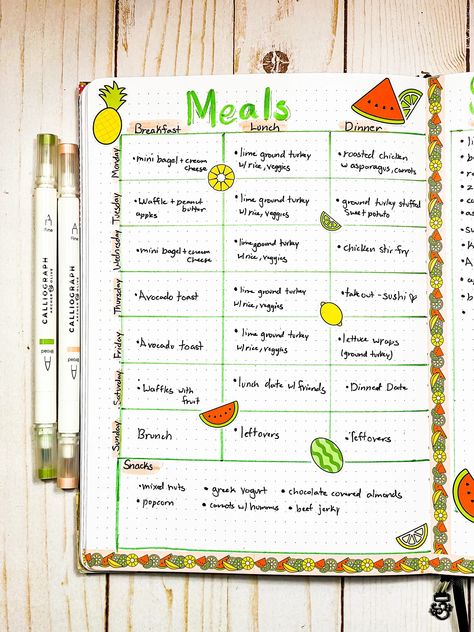 Meals
Breakfast Lunch Dinner
Monday
• mini bagel + cream cheese
• lime ground turkey w/ rice, veggies
• roasted chicken w asparagus, carrots
Tuesday
• Waffle + peanut butter apples
lime ground turkey w/ rice, veggies
• ground turkey stuffed sweet potato
Wednesday
• mini bagel + cream cheese
• lime ground turkey w/ rice, veggies
• chicken stir-fry
Thursday
• Avocado toast
• lime ground turkey w/ rice, veggies
• takeout - sushi ♡
Friday
• Avocado toast
• lime ground turkey w/ rice, veggies
• lettuce wraps (ground turkey)
Saturday
• Waffles with fruit
• lunch date w/ friends
• Dinned Date
Sunday
Brunch
• leftovers
• leftovers
Snacks
• mixed nuts • greek yogurt • chocolate covered almonds
• popcorn • carrots w/ hummus • beef jerky
A fine
CALLIOGRAPH
ARCHER & OLIVE
A fine
CALLIOGRAPH
ARCHER & OLIVE